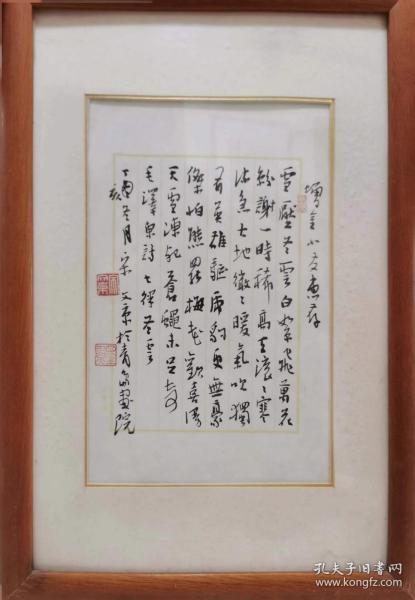 增金小友惠存
雪壓冬雲白絮飛萬花
紛謝一時稀高天滾〻寒
流急大地微〻暖氣吹獨
有英雄驅虎豹更無豪
傑怕熊羆梅花歡喜漫
天雪凍死蒼蠅未足奇
毛澤東詩七律冬雲
丁亥冬月宋文京於青島畫院
孔夫子旧书网
www.kongfz.com